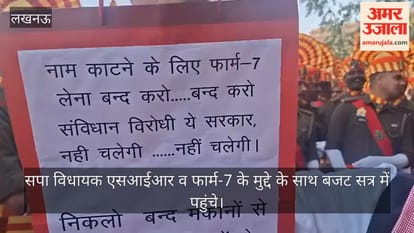 लखनऊ
अमर उजाला
amarujala.com
नाम काटने के लिए फार्म–7
लेना बन्द करो.....बन्द करो
संविधान विरोधी ये सरकार,
नही चलेगी ......नहीं चलेगी।
सपा विधायक एसआईआर व फार्म-7 के मुद्दे के साथ बजट सत्र में
पहुंचे।
निकलो बन्द मकानों से